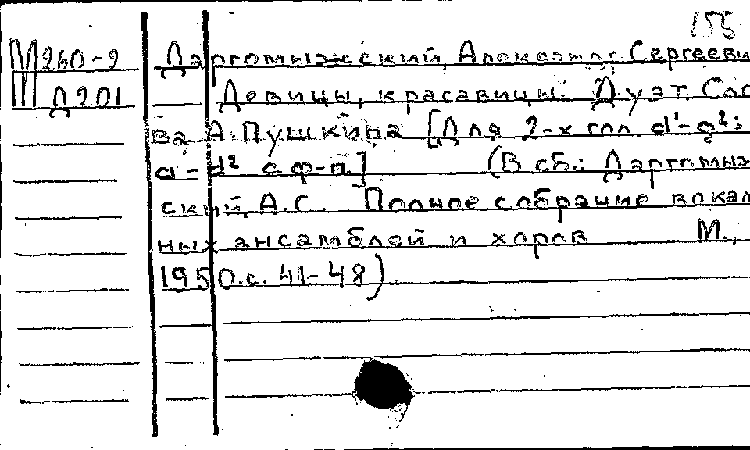 155
М260-2 Даргомыжский, Александр Сергеевич
Д201 Девицы, красавицы. Дуэт. Сло-
ва А. Пушкина [Для 2-х гол. d¹-g²;
d¹-d² с ф-п.] (В сб.: Даргомыж-
ский, А.С. Полное собрание вокаль-
ных ансамблей и хоров М.,
1950. с. 41-48)